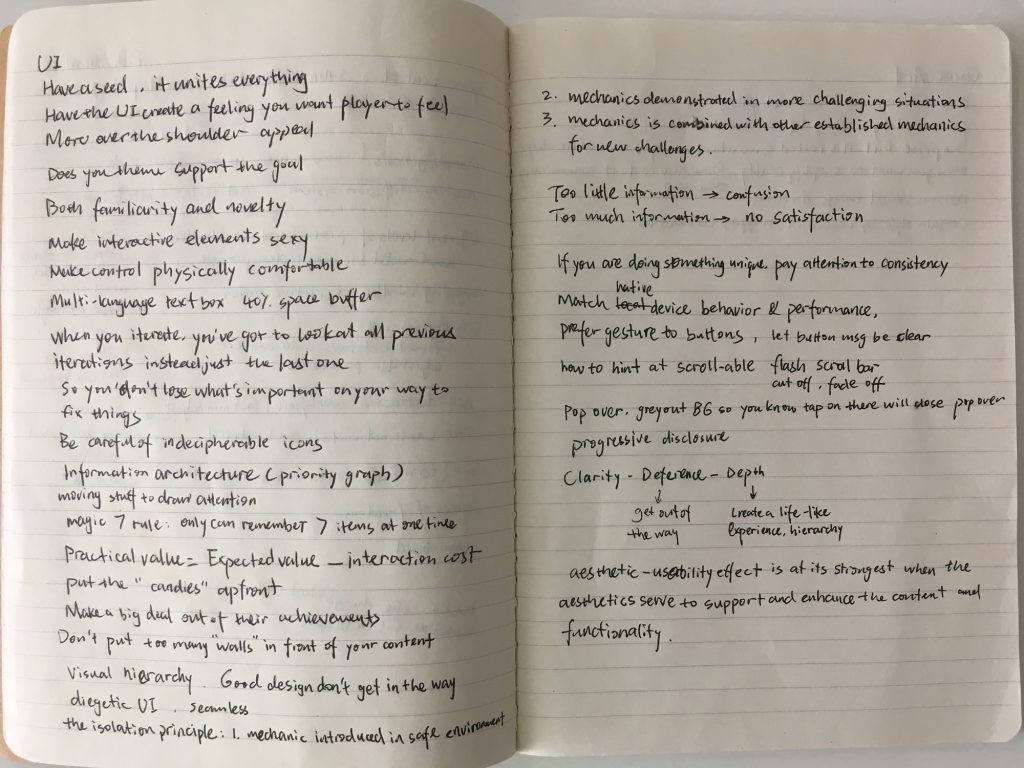 UI
Have a seed, it unites everything
Have the UI create a feeling you want player to feel
More over the shoulder appeal
Does you theme support the goal
Both familiarity and novelty
Make interactive elements sexy
Make control physically comfortable
Multi-language text box 40% space buffer
When you iterate, you've got to look at all previous
iterations instead just the last one
So you don't lose what's important on your way to
fix things
Be careful of indecipherable icons
Information architecture (priority graph)
moving stuff to draw attention
magic 7 rule: only can remember 7 items at one time
Practical value = Expected value - interaction cost
put the "candies" upfront
Make a big deal out of their achievements
Don't put too many "walls" in front of your content
Visual hierarchy. Good design don't get in the way
diegetic UI, seamless
the isolation principle: 1. mechanic introduced in safe environment
2. mechanics demonstrated in more challenging situations
3. mechanics is combined with other established mechanics
for new challenges.
Too little information → confusion
Too much information → no satisfaction
If you are doing something unique, pay attention to consistency
native
Match local device behavior & performance,
prefer gesture to buttons, let button msg be clear
how to hint at scroll-able flash scroll bar
cut off, fade off
Pop over, grey out BG so you know tap on there will close pop over
progressive disclosure
Clarity - Deference - Depth
↓ ↓
get out of create a life-like
the way experience, hierarchy
aesthetic-usability effect is at its strongest when the
aesthetics serve to support and enhance the content and
functionality.